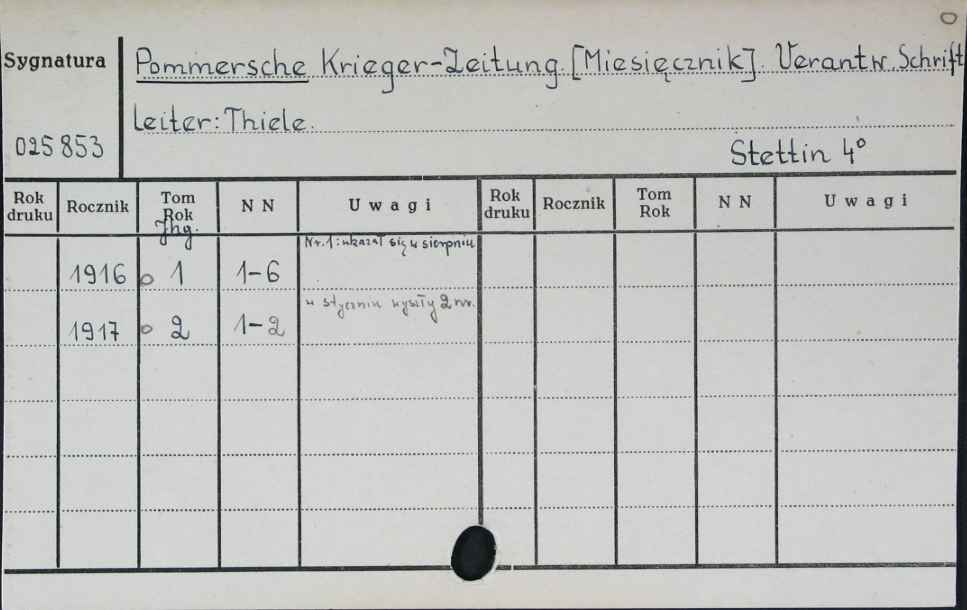 O
Sygnatura
Pommersche Krieger-Zeitung. [Miesięcznik]. Verantw. Schrift
Leiter: Thiele.
025853
Stettin 4°
Rok druku Rocznik Tom Rok Jhg. N N Uwagi Rok druku Rocznik Tom Rok N N Uwagi
Nr. 1: ukazał się w sierpniu
1916 o 1 1-6
w styczniu wyszły 2 nr.
1917 o 2 1-2